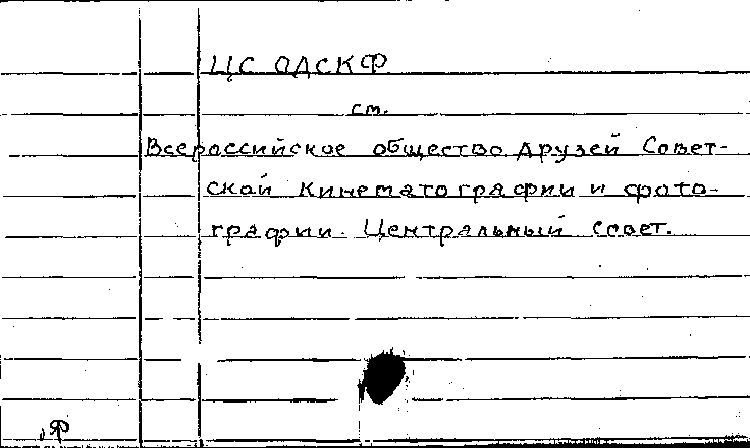 ЦС ОДСКФ
см.
Всероссийское общество друзей Совет-
ской кинематографии и фото-
графии. Центральный совет.